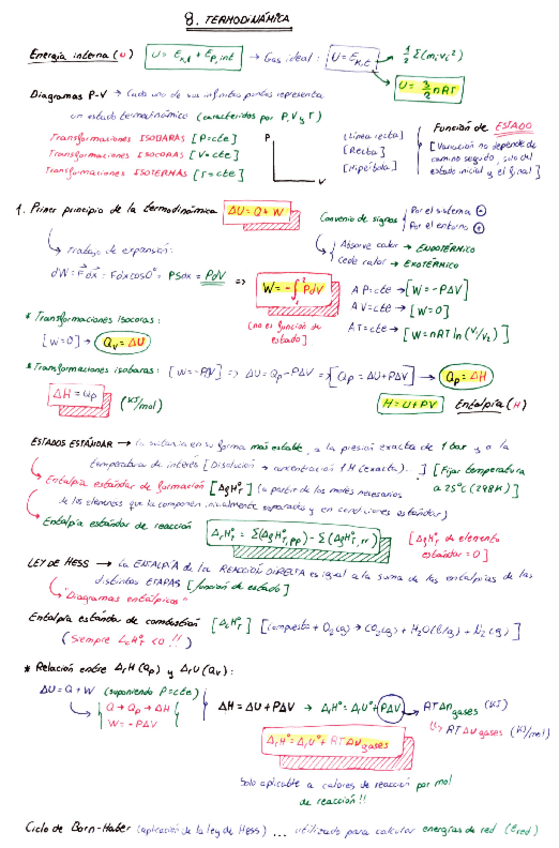 8. TERMODINÁMICA
Energía interna (U) U = E_K,t + E_P,int → Gas ideal: U = E_K,t 1/2 Σ(m_i v_i²)
U = 3/2 nRT
Diagramas P-V → Cada uno de sus infinitos puntos representa
un estado termodinámico (caracterizados por P, V y T)
Transformaciones ISOBARAS [P=cte] P [Línea recta]
Transformaciones ISOCORAS [V=cte] [Recta]
Transformaciones ISOTERMAS [T=cte] V [Hipérbola]
Función de ESTADO
[Variación no depende de
camino seguido, solo del
estado inicial y el final]
1. Primer principio de la termodinámica ΔU = Q + W Convenio de signos Por el sistema ⊖
Por el entorno ⊕
Absorve calor → ENDOTÉRMICO
Cede calor → EXOTÉRMICO
Trabajo de expansión:
dW = F dx = F dx cos 0° = PS dx = PdV ⇒ W = -∫₁² PdV
[no es función de
estado]
A P=cte → [W = -PΔV]
A V=cte → [W=0]
A T=cte → [W = nRT ln (V₁/V₂)]
* Transformaciones isocoras:
[W=0] → Q_V = ΔU
* Transformaciones isobaras: [W = -PΔV] ⇒ ΔU = Q_P - PΔV ⇒ [Q_P = ΔU + PΔV] → Q_P = ΔH
ΔH = Q_P (KJ/mol) H = U + PV Entalpía (H)
ESTADOS ESTÁNDAR → la sustancia en su forma más estable, a la presión exacta de 1 bar y a la
temperatura de interés [Disolución → concentración 1M (exacta)...] [Fijar temperatura
a 25°C (298K)]
Entalpía estándar de formación [Δ_f H°_T] (a partir de los moles necesarios
de los elementos que la componen, inicialmente separados y en condiciones estándar)
Entalpía estándar de reacción Δ_r H°_T = Σ(Δ_f H°_T, pp) - Σ(Δ_f H°_T, rr) [Δ_f H°_T de elemento
estándar = 0]
LEY DE HESS → La ENTALPÍA de la REACCIÓN DIRECTA es igual a la suma de las entalpías de las
distintas ETAPAS [función de estado]
"Diagramas entálpicos"
Entalpía estándar de combustión [Δ_c H°_T] [compuesto + O₂(g) → CO₂(g) + H₂O(l/g) + N₂(g)]
(Siempre Δ_c H° < 0 !!)
* Relación entre Δ_r H (Q_P) y Δ_r U (Q_V):
ΔU = Q + W (suponiendo P=cte)
Q → Q_P → ΔH
W = -PΔV
ΔH = ΔU + PΔV → Δ_r H° = Δ_r U° + PΔV → RTΔn gases (KJ)
RTΔn gases (KJ/mol)
Δ_r H° = Δ_r U° + RTΔn gases
Solo aplicable a calores de reacción por mol
de reacción!!
Ciclo de Born-Haber (aplicación de la ley de Hess) ... utilizado para calcular energías de red (E_red)